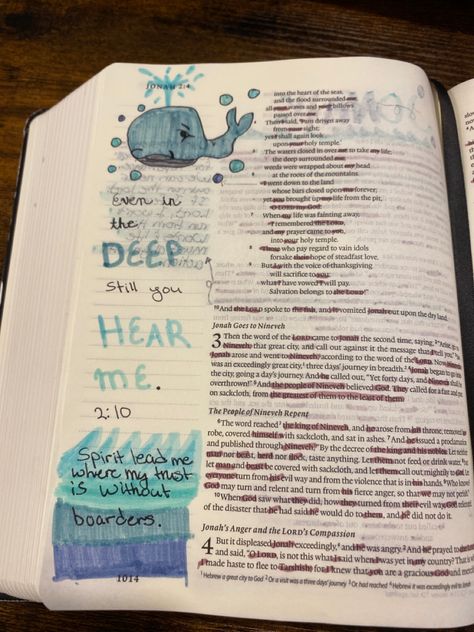 JONAH 2:4
even in
the
DEEP
Still you
HEAR
ME.
2:10
Spirit lead me
where my trust
is without
boarders!
1014
into the heart of the seas,
and the flood surrounded me;
all your waves and your billows
passed over me.
4 Then I said, 'I am driven away
from your sight;
yet I shall again look
upon your holy temple.'
5 The waters closed in over me to take my life;
the deep surrounded me;
weeds were wrapped about my head
6 at the roots of the mountains.
I went down to the land
whose bars closed upon me forever;
yet you brought up my life from the pit,
O LORD my God.
7 When my life was fainting away,
I remembered the LORD,
and my prayer came to you,
into your holy temple.
8 Those who pay regard to vain idols
forsake their hope of steadfast love.
9 But I with the voice of thanksgiving
will sacrifice to you;
what I have vowed I will pay.
Salvation belongs to the LORD!"
10 And the LORD spoke to the fish, and it vomited Jonah out upon the dry land.
Jonah Goes to Nineveh
3 Then the word of the LORD came to Jonah the second time, saying, 2 "Arise, go to
Nineveh, that great city, and call out against it the message that I tell you." 3 So
Jonah arose and went to Nineveh, according to the word of the LORD. Now Nineveh
was an exceedingly great city, three days' journey in breadth. 4 Jonah began to go into
the city, going a day's journey. And he called out, "Yet forty days, and Nineveh shall be
overthrown!" 5 And the people of Nineveh believed God. They called for a fast and put
on sackcloth, from the greatest of them to the least of them.
The People of Nineveh Repent
6 The word reached the king of Nineveh, and he arose from his throne, removed his
robe, covered himself with sackcloth, and sat in ashes. 7 And he issued a proclamation
and published through Nineveh, "By the decree of the king and his nobles: Let neither
man nor beast, herd nor flock, taste anything. Let them not feed or drink water, 8 but
let man and beast be covered with sackcloth, and let them call out mightily to God. Let
everyone turn from his evil way and from the violence that is in his hands. 9 Who knows?
God may turn and relent and turn from his fierce anger, so that we may not perish."
10 When God saw what they did, how they turned from their evil way, God relented
of the disaster that he had said he would do to them, and he did not do it.
Jonah's Anger and the LORD's Compassion
4 But it displeased Jonah exceedingly, and he was angry. 2 And he prayed to the LORD
and said, "O LORD, is not this what I said when I was yet in my country? That is why
I made haste to flee to Tarshish; for I knew that you are a gracious God and merciful
1 Hebrew a great city to God 2 Or a visit was a three days' journey 3 Or had reached 4 Hebrew it was exceedingly evil to Jonah